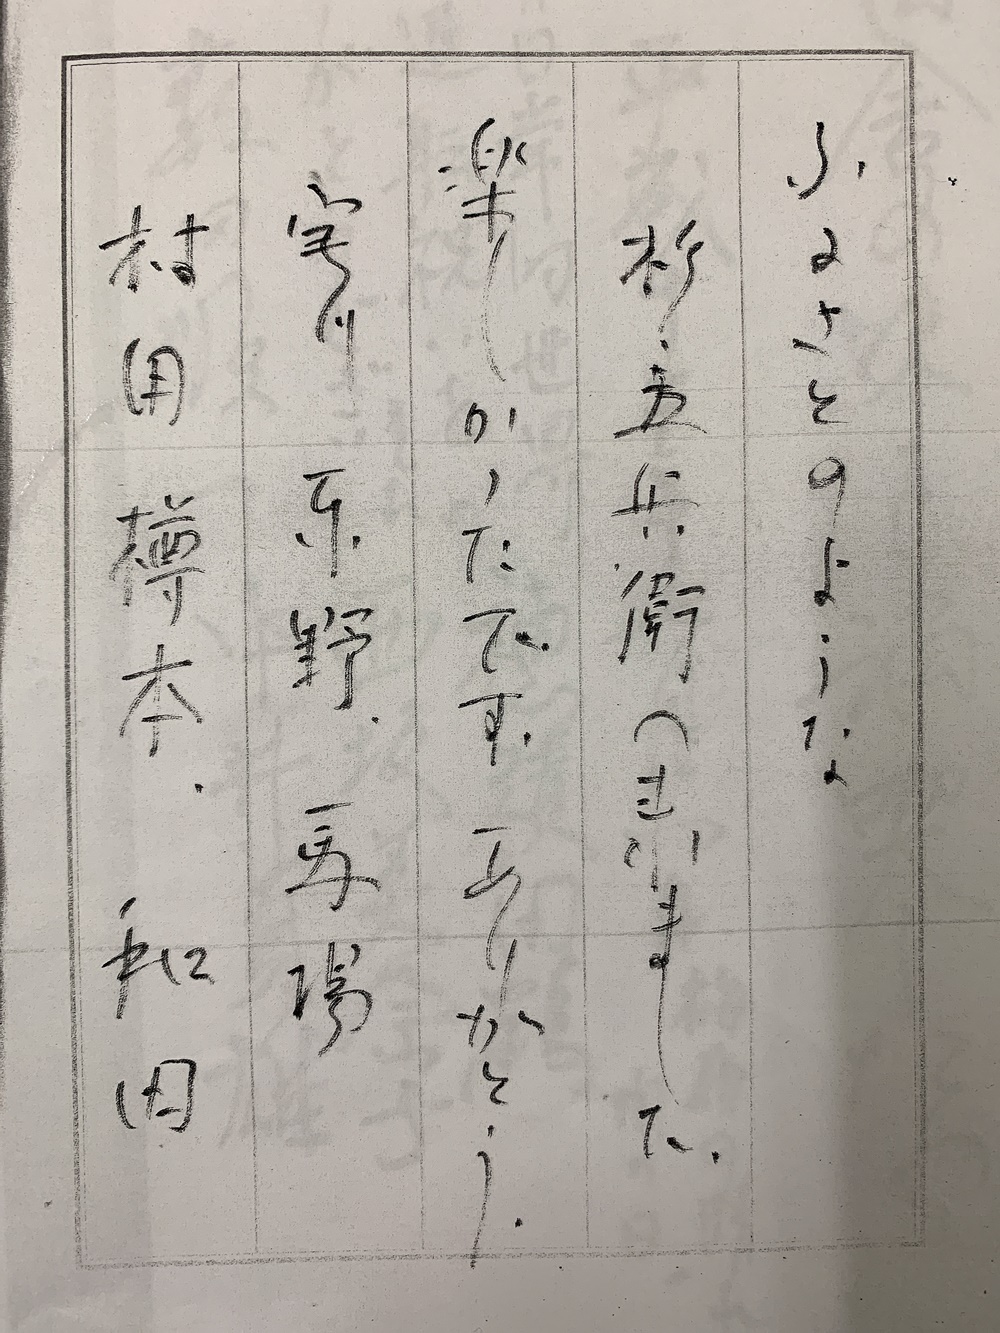 ふるさとのような
杉五兵衛へ来ました。
楽しかったです。ありがとう。
東野、馬場
村田 樽本、 和田